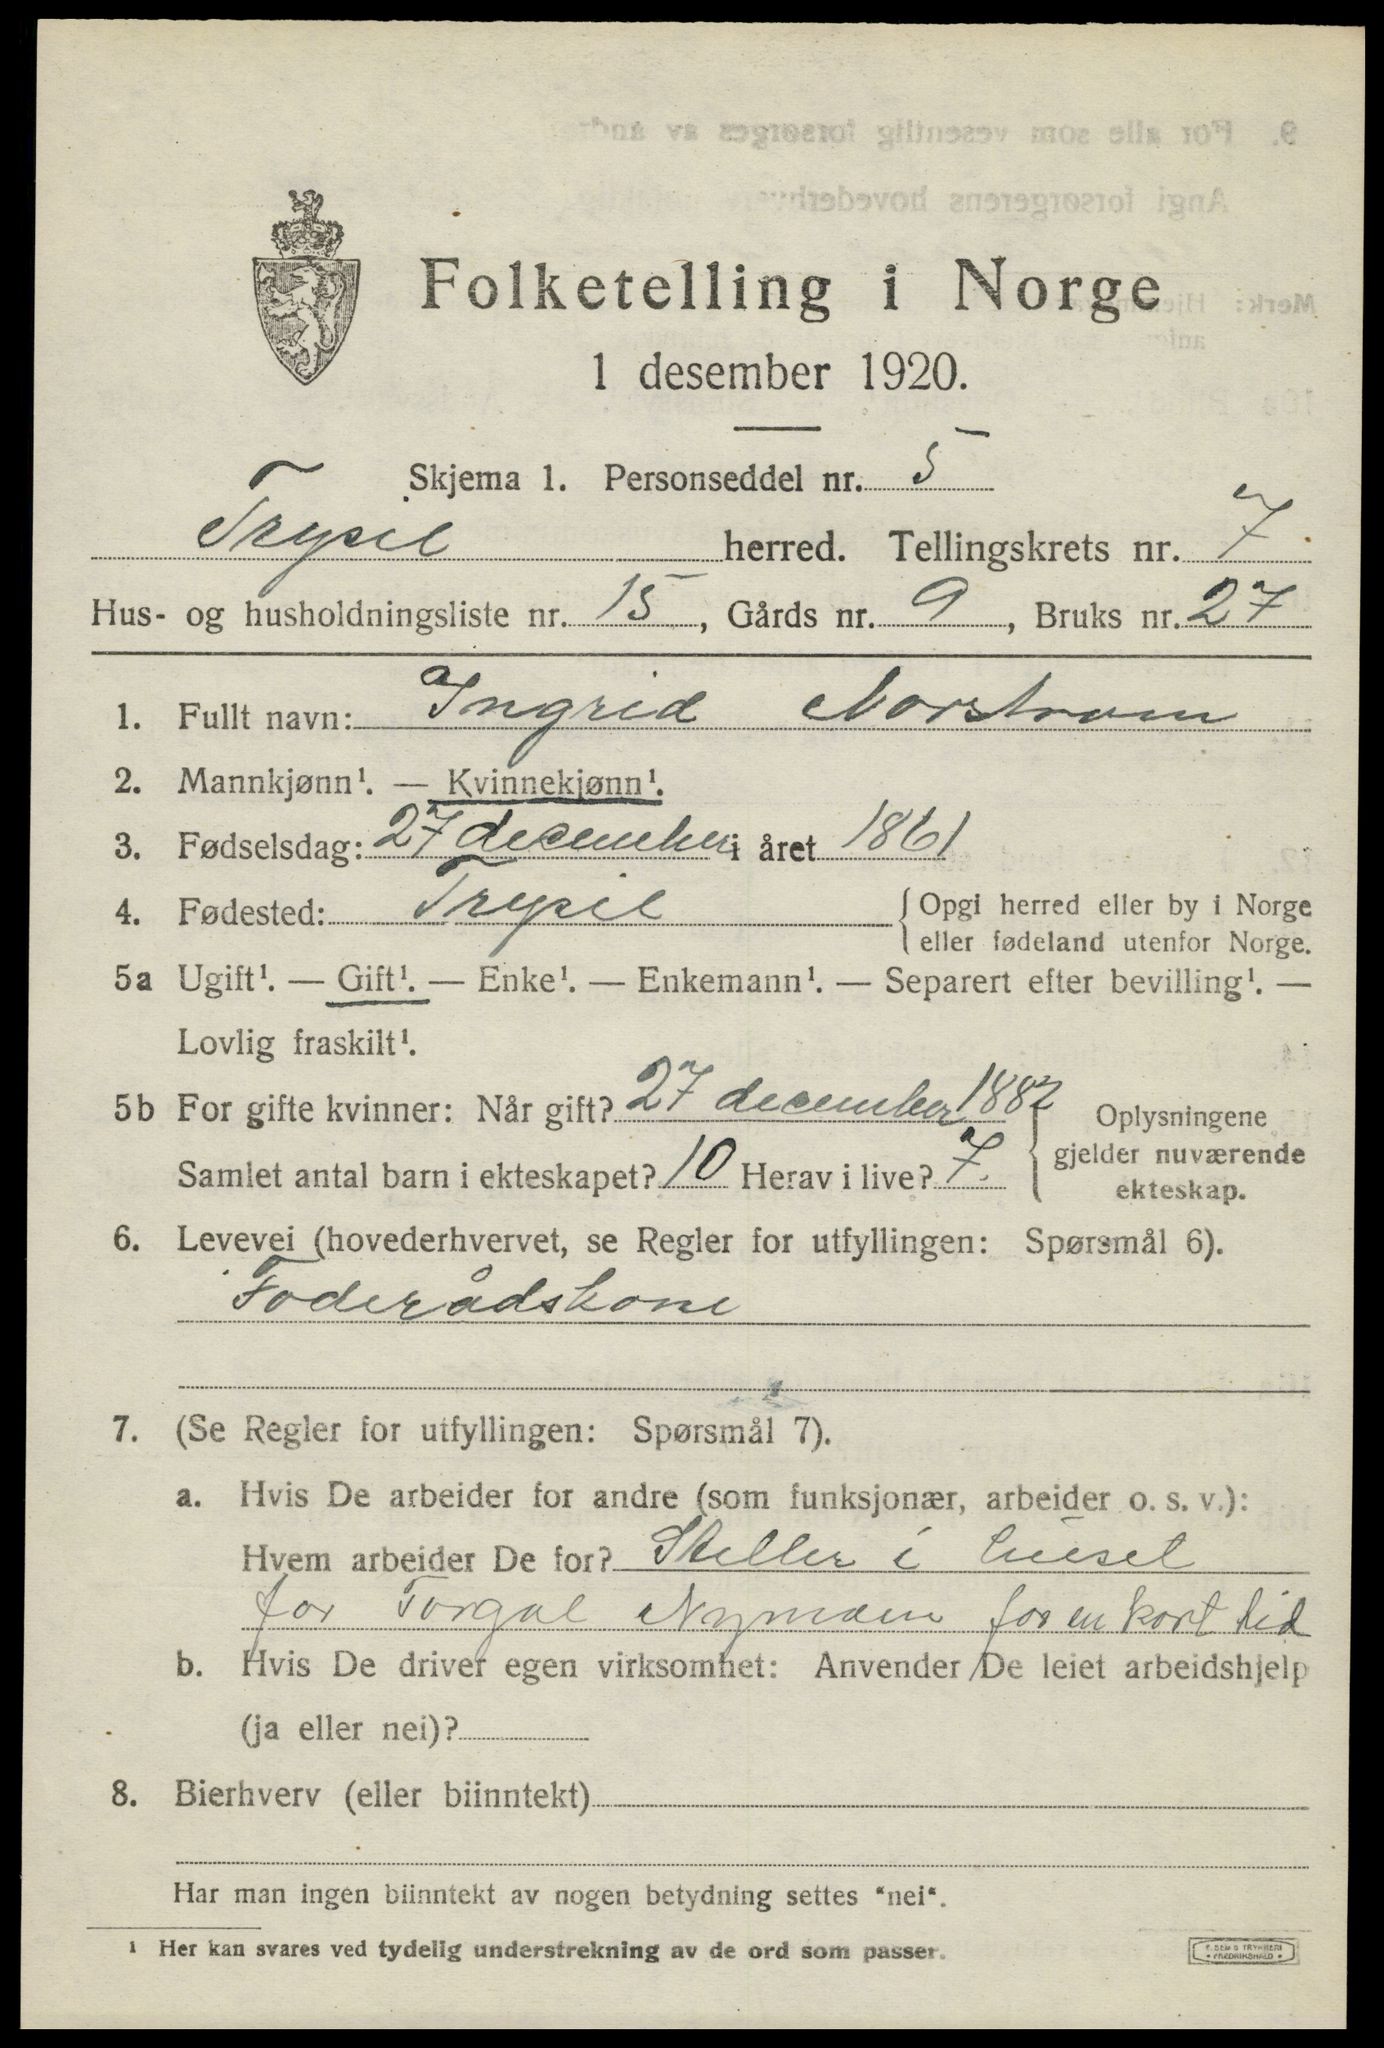 Folketelling i Norge
1 desember 1920.
Skjema 1. Personseddel nr. 5
Trysil herred. Tellingskrets nr. 7
Hus- og husholdningsliste nr. 15, Gårds nr. 9, Bruks nr. 27
1. Fullt navn: Ingrid Norstrøm
2. Mannkjønn¹. — Kvinnekjønn¹.
3. Fødselsdag: 27 december i året 1861
4. Fødested: Trysil { Opgi herred eller by i Norge
eller fødeland utenfor Norge.
5a Ugift¹. — Gift¹. — Enke¹. — Enkemann¹. — Separert efter bevilling¹. —
Lovlig fraskilt¹.
5b For gifte kvinner: Når gift? 27 december 1882
Samlet antal barn i ekteskapet? 10 Herav i live? 7. { Oplysningene
gjelder nuværende
ekteskap.
6. Levevei (hovederhvervet, se Regler for utfyllingen: Spørsmål 6).
Foderådskone
7. (Se Regler for utfyllingen: Spørsmål 7).
a. Hvis De arbeider for andre (som funksjonær, arbeider o. s. v.):
Hvem arbeider De for? Steller i huset
for Torgal Nymoen for en kort tid
b. Hvis De driver egen virksomhet: Anvender De leiet arbeidshjelp
(ja eller nei)?
8. Bierhverv (eller biinntekt)
Har man ingen biinntekt av nogen betydning settes "nei".
¹ Her kan svares ved tydelig understrekning av de ord som passer.
F. SEM'S TRYKKERI
• FREDRIKSHALD •